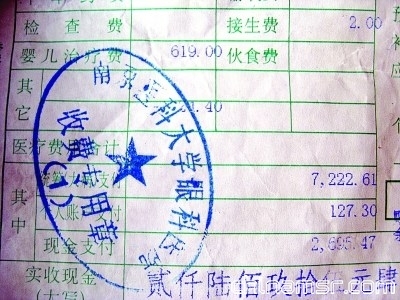 检 查 费 接生费 2.00
婴儿治疗费 619.00 伙食费
其 .40
它
医疗费用合计
支 7,222.61
其 个人账 支付 127.30
中 现金支付 2,695.47
实收现金 贰仟陆佰玖拾伍元肆
(大写)
南京医科大学眼科医
收费专用章
(11)